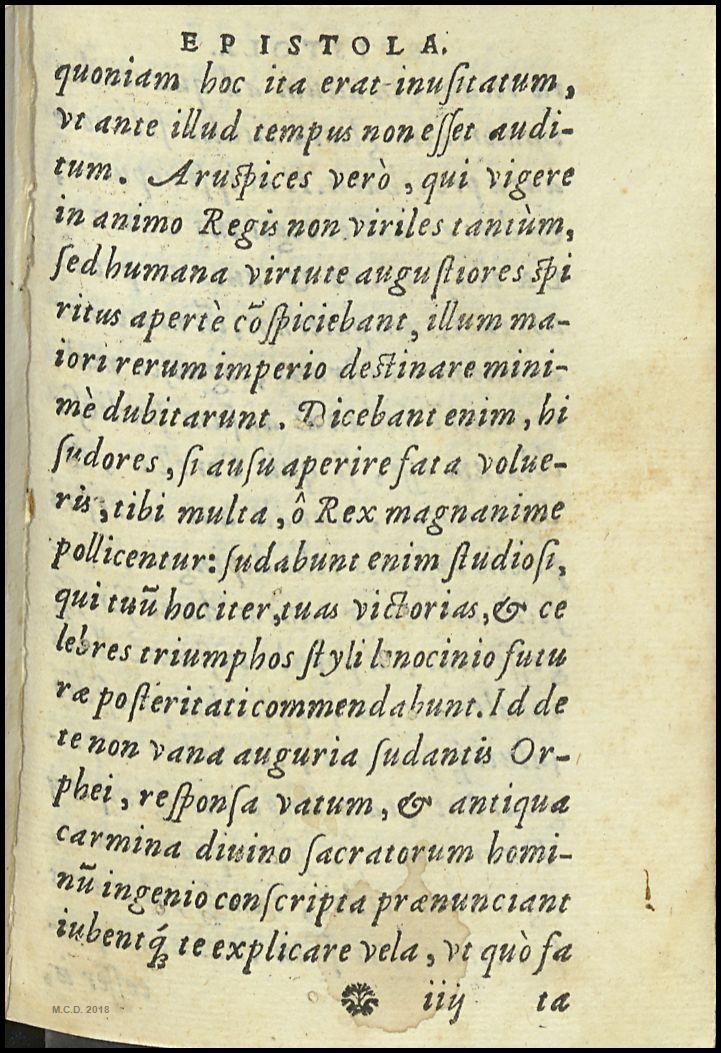 EPISTOLA.
quoniam hoc ita erat inuſitatum,
vt ante illud tempus non eſſet audi-
tum. Aruſpices verò, qui vigere
in animo Regis non viriles tantùm,
ſed humana virtute auguſtiores ſpi
ritus apertè cõſpiciebant, illum ma-
iori rerum imperio deſtinare mini-
mè dubitarunt. Dicebant enim, hi
ſudores, ſi auſu aperire fata volue-
ris, tibi multa, ô Rex magnanime
pollicentur: ſudabunt enim ſtudioſi,
qui tuũ hoc iter, tuas victorias, & ce
lebres triumphos ſtyli lenocinio futu
ræ poſteritati commendabunt. Id de
te non vana auguria ſudantis Or-
phei, reſponſa vatum, & antiqua
carmina diuino ſacratorum homi-
nũ ingenio conſcripta prænunciant
iubentq́ꝫ te explicare vela, vt quò fa
iiij ta
M.C.D. 2018